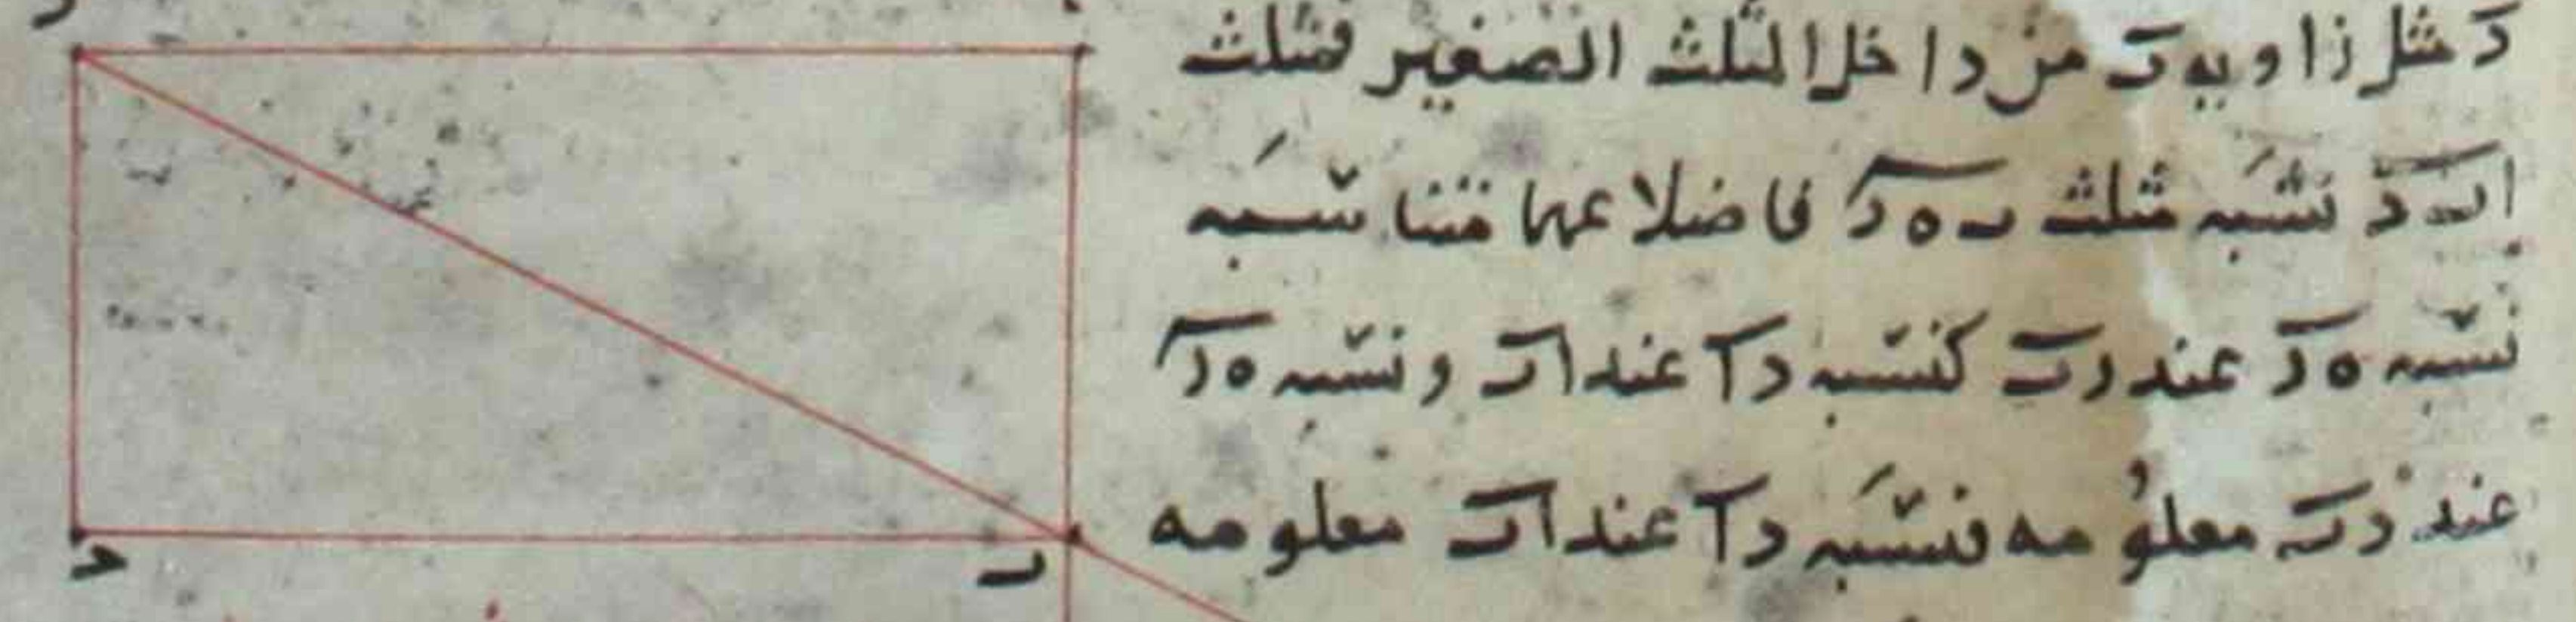 د مثل زاويه ب من داخل المثلث الصغير فمثلث
اب د تشبه مثلث ب ه ر فاضلاعهما متناسبه
نسبه ه ر عند رب كنسبه د ا عند اب ونسبه ه ر
عند رب معلومه فنسبه د ا عند اب معلومه
د
ب